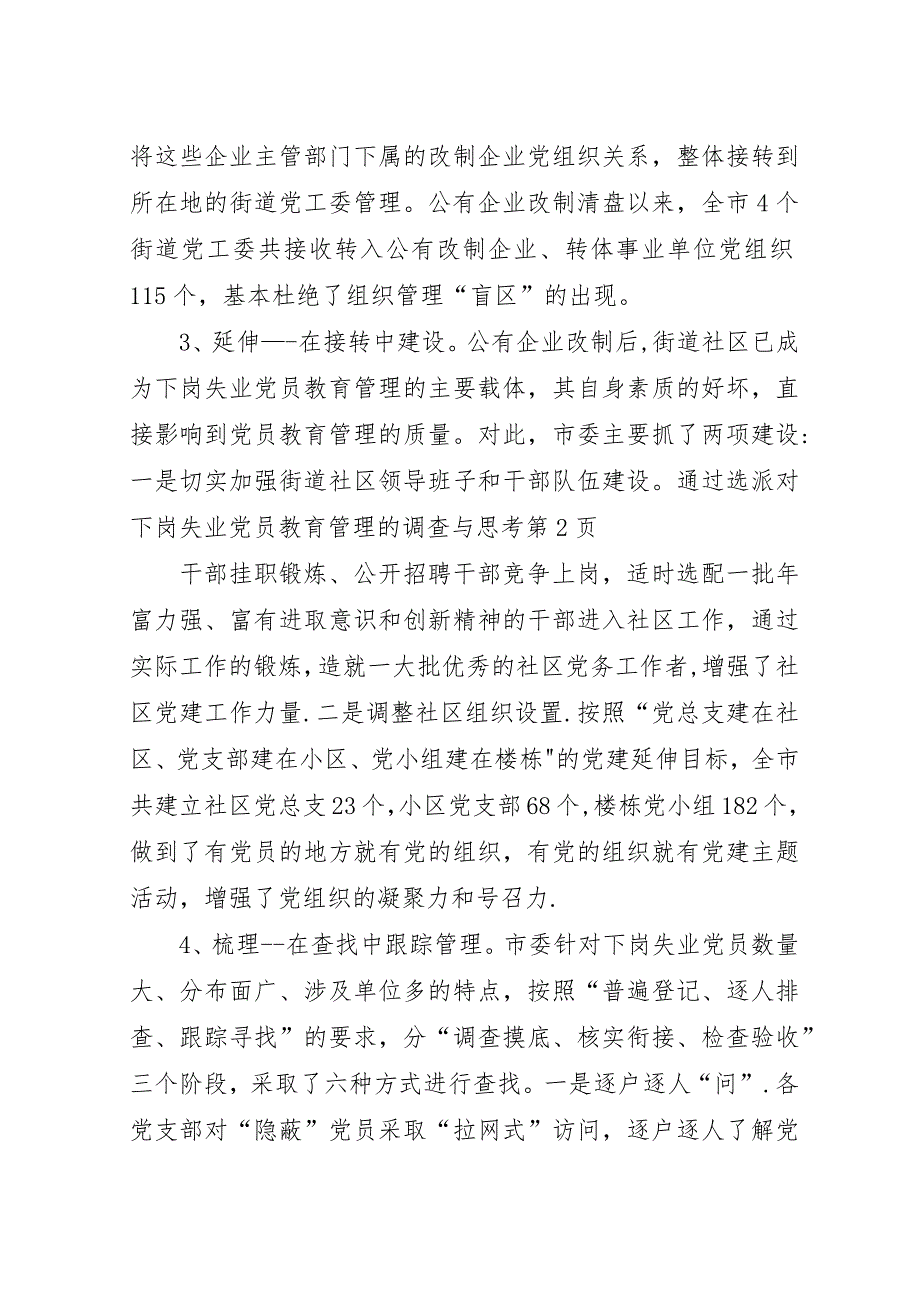 将这些企业主管部门下属的改制企业党组织关系，整体接转到
所在地的街道党工委管理。公有企业改制清盘以来，全市 4 个
街道党工委共接收转入公有改制企业、转体事业单位党组织
115 个，基本杜绝了组织管理“盲区”的出现。
3、延伸—-在接转中建设。公有企业改制后,街道社区已成
为下岗失业党员教育管理的主要载体，其自身素质的好坏，直
接影响到党员教育管理的质量。对此，市委主要抓了两项建设:
一是切实加强街道社区领导班子和干部队伍建设。通过选派对
下岗失业党员教育管理的调查与思考第 2 页
干部挂职锻炼、公开招聘干部竞争上岗，适时选配一批年
富力强、富有进取意识和创新精神的干部进入社区工作，通过
实际工作的锻炼，造就一大批优秀的社区党务工作者,增强了社
区党建工作力量.二是调整社区组织设置.按照“党总支建在社
区、党支部建在小区、党小组建在楼栋"的党建延伸目标，全市
共建立社区党总支 23 个,小区党支部 68 个,楼栋党小组 182 个，
做到了有党员的地方就有党的组织，有党的组织就有党建主题
活动，增强了党组织的凝聚力和号召力.
4、梳理--在查找中跟踪管理。市委针对下岗失业党员数量
大、分布面广、涉及单位多的特点，按照“普遍登记、逐人排
查、跟踪寻找”的要求，分“调查摸底、核实衔接、检查验收”
三个阶段，采取了六种方式进行查找。一是逐户逐人“问”.各
党支部对“隐蔽”党员采取“拉网式”访问，逐户逐人了解党